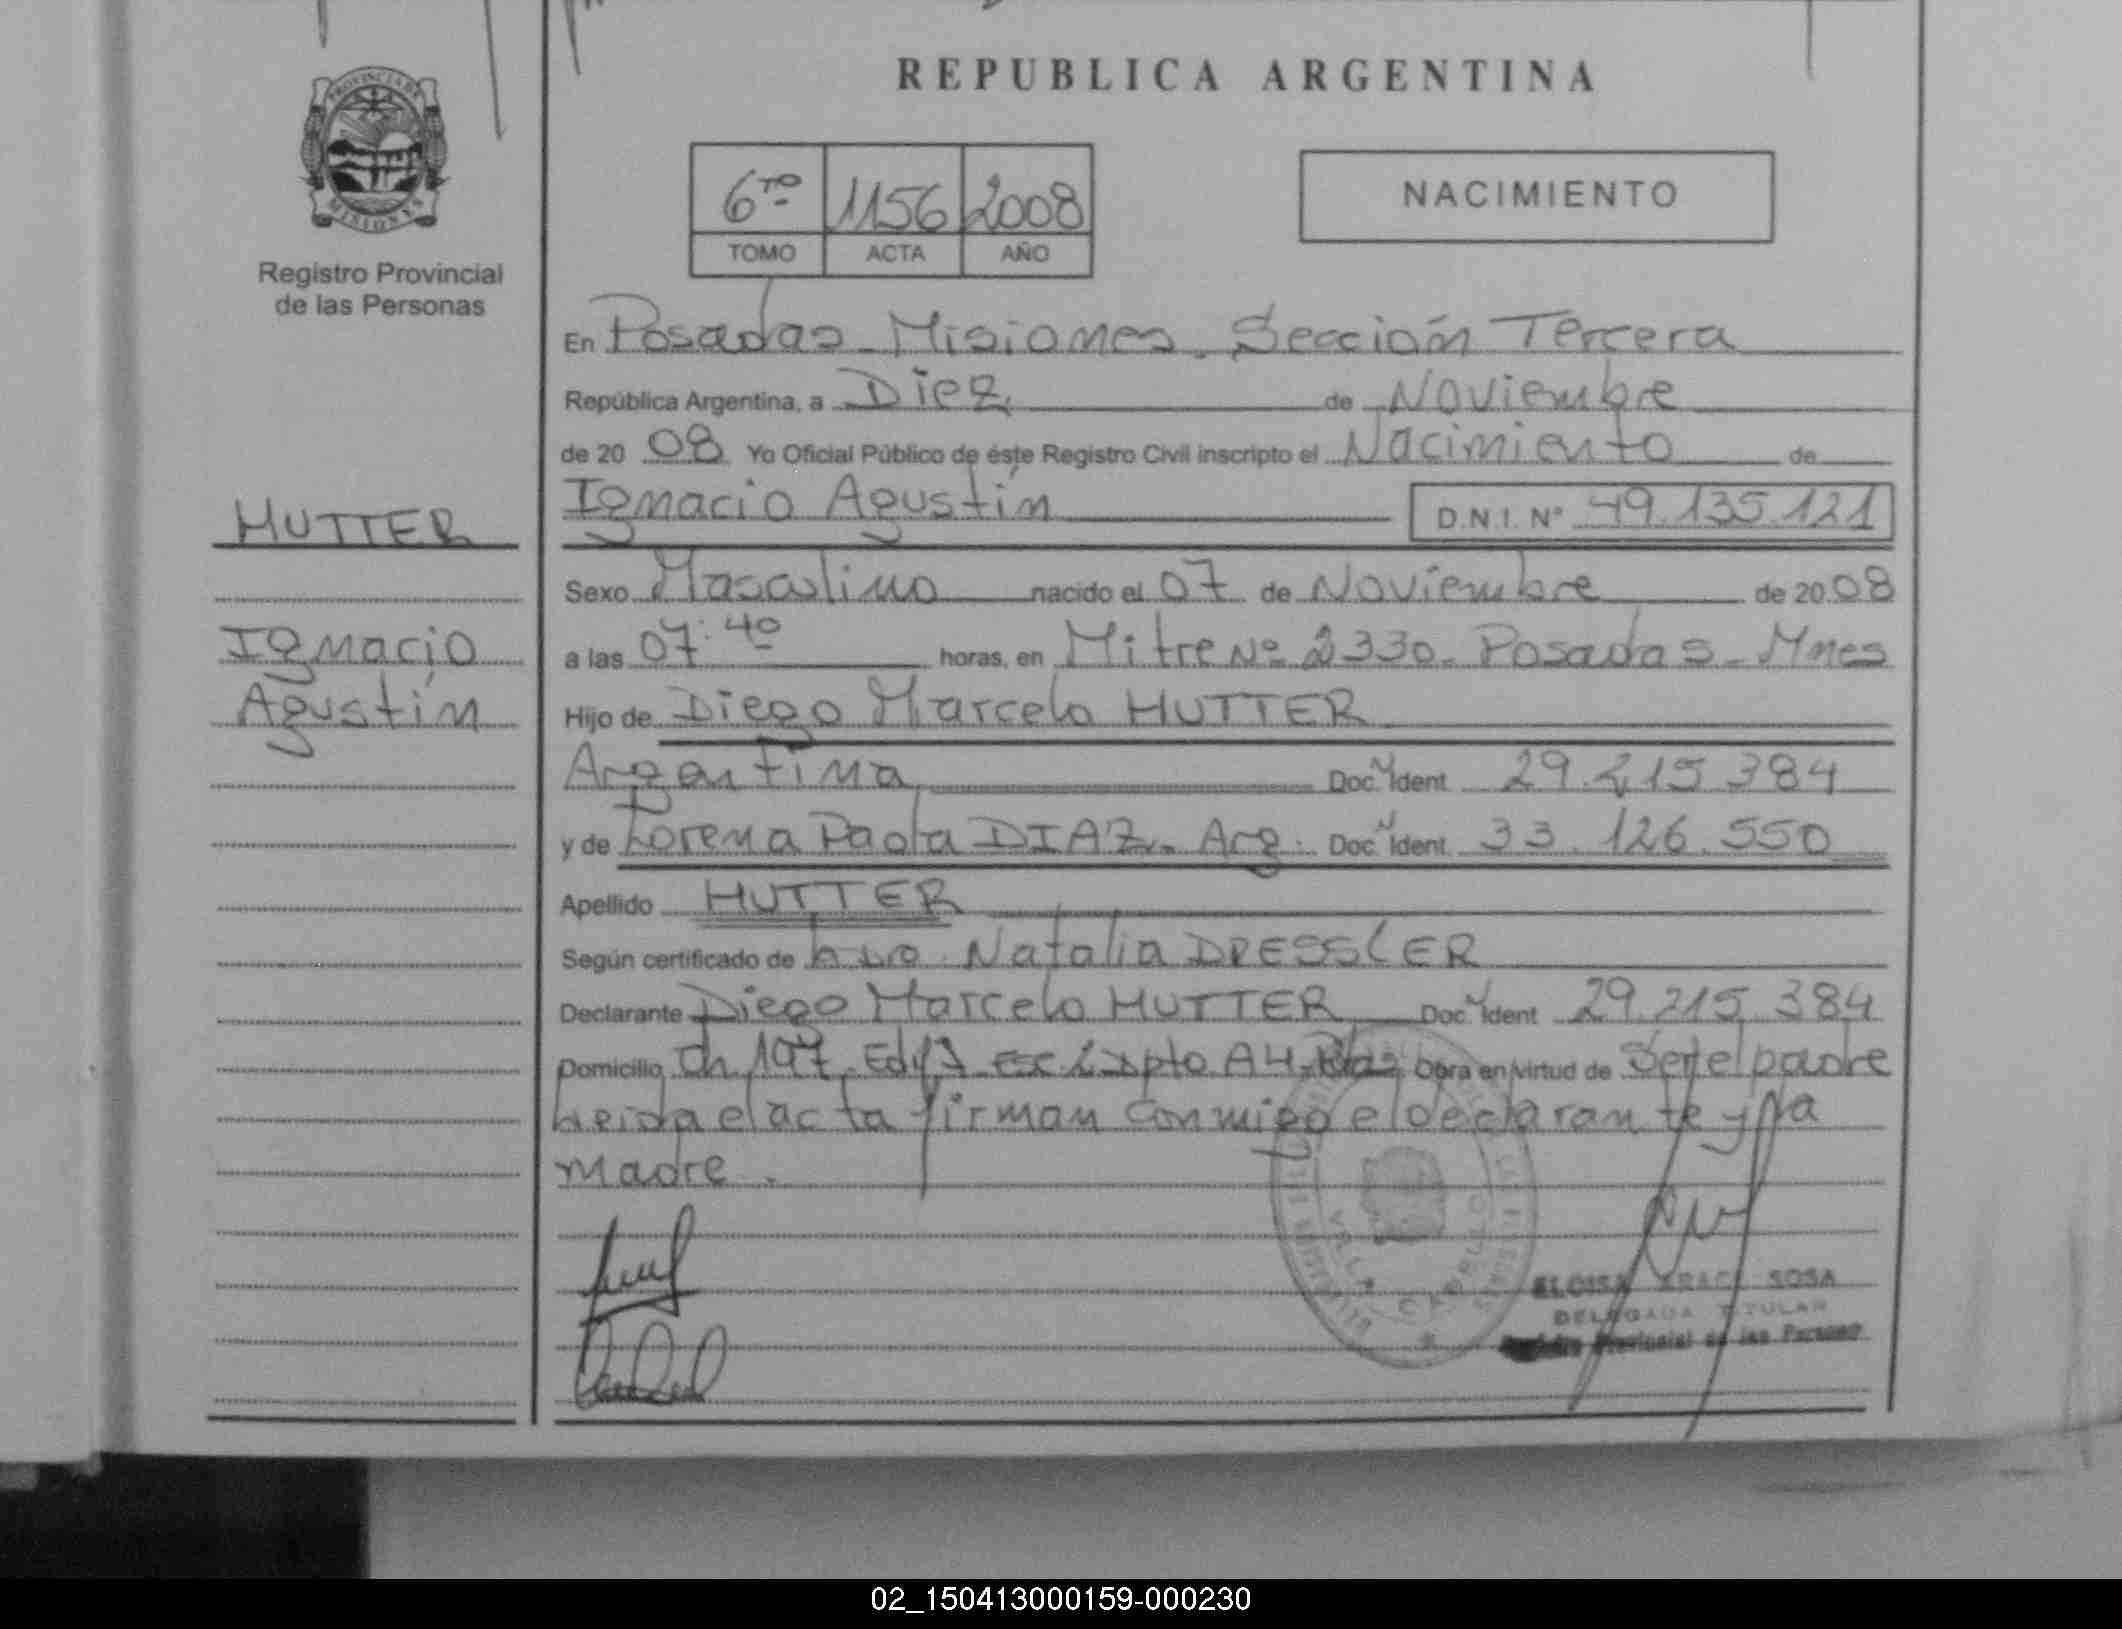 REPUBLICA ARGENTINA
PROVINCIA DE
MISIONES
Registro Provincial
de las Personas
6TO 1156 2008
TOMO ACTA AÑO
NACIMIENTO
En Posadas - Misiones. Sección Tercera
República Argentina, a Diez de Noviembre
de 20 08 Yo Oficial Público de éste Registro Civil inscripto el Nacimiento de
HUTTER
Ignacio Agustín D.N.I. Nº 49.135.121
Sexo Masculino nacido el 07 de Noviembre de 20 08
Ignacio
a las 07:40 horas, en Mitre Nº 2330. Posadas - Mnes
Agustín
Hijo de Diego Marcelo HUTTER
Argentina Doc. Ident. 29.215.384
y de Lorena Paola DIAZ. Arg. Doc. Ident. 33.126.550
Apellido HUTTER
Según certificado de Natalia DRESSLER
Declarante Diego Marcelo HUTTER Doc. Ident 29.215.384
Domicilio Ch 197 Edif Dpto A4 Obra en virtud de ser el padre
leida el acta firman conmigo el declarante y la
madre.
VILLA CABELLO
ELOISA SOSA
DELEGADA TITULAR
Provincial de las Personas
02_150413000159-000230